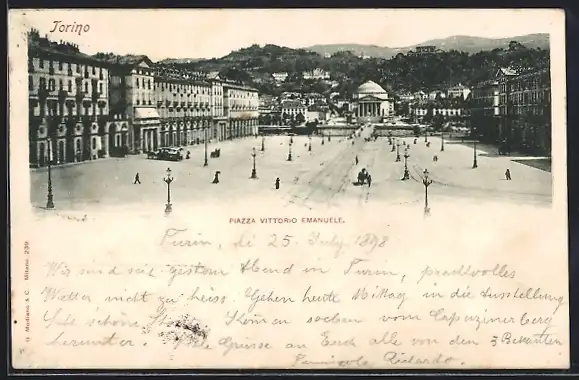 Torino
PIAZZA VITTORIO EMANUELE.
H. Modiano & C. Milano 239.
Turin, di 25 July 1898
Wir sind seit gestern Abend in Turin, prachtvolles
Wetter nicht zu heiss. Gehen heute Mittag in die Ausstellung
schöne kommen soeben vom Capuzinerberg
herunter. Viele Grüsse an Euch alle von den 3 Bekannten
Ricardo.